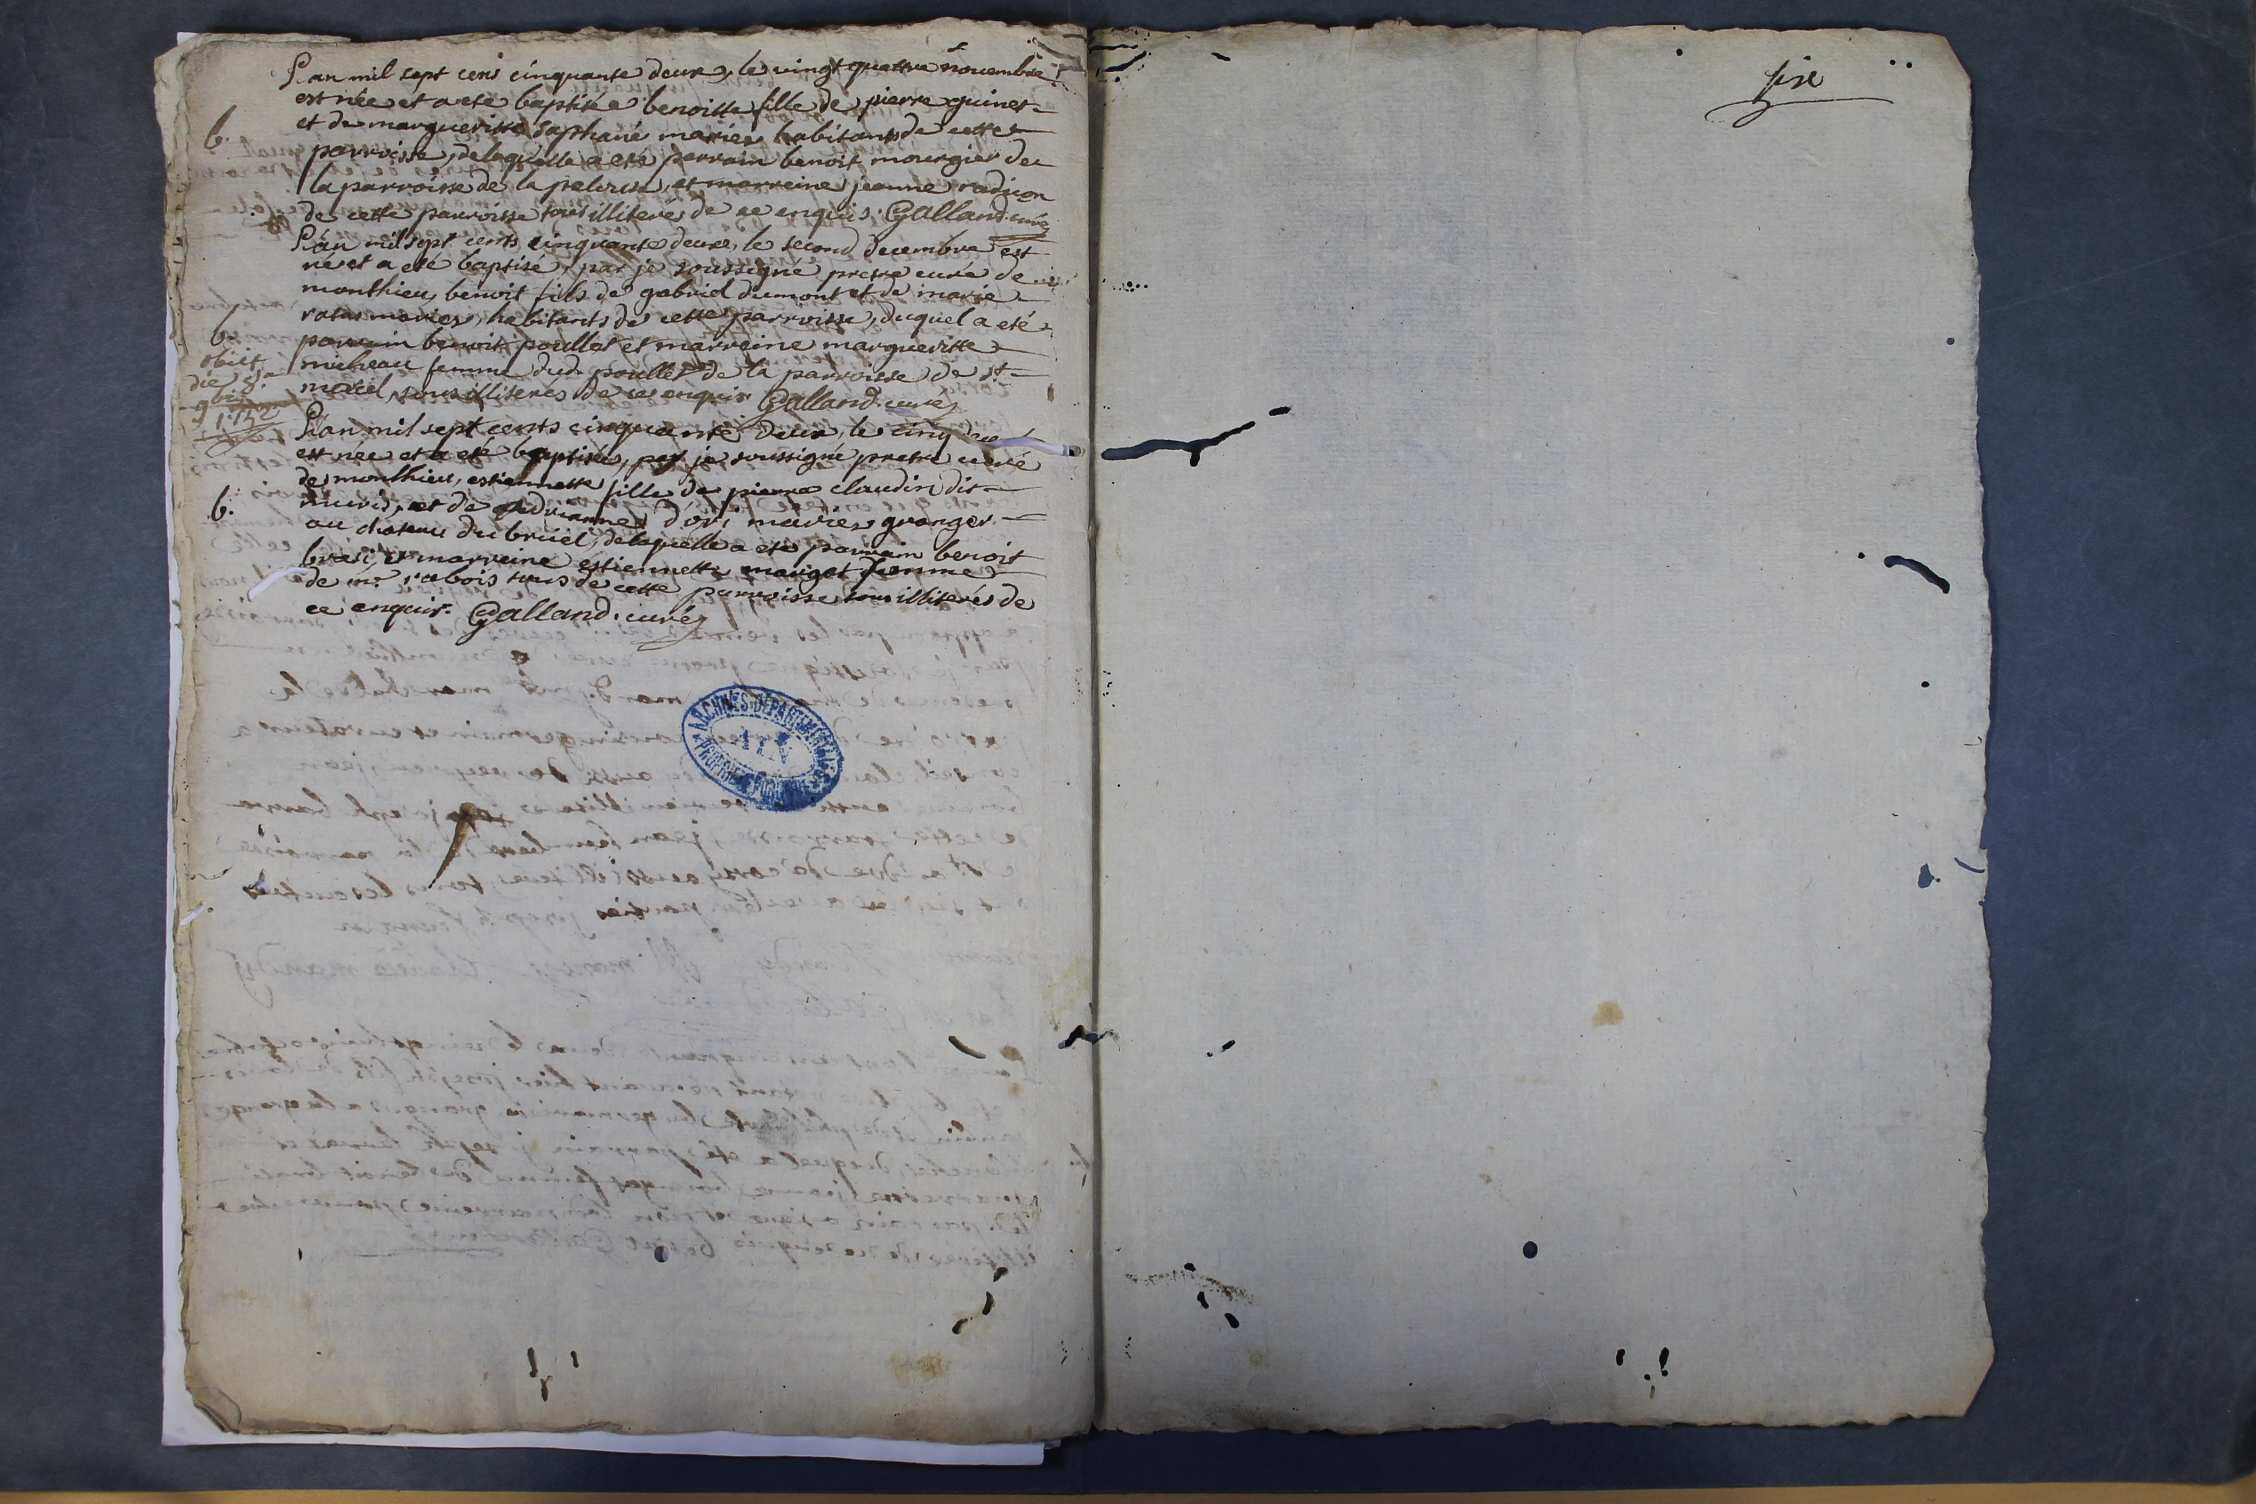 L'an mil sept cens cinquante deux, le vingt quatre novembre
est née et a eté baptisée benoitte fille de pierre guinet
b. et de margueritte saphané mariés habitants de cette
parroisse, delaquelle a eté parrain benoit mourgier de
la parroisse de la pelouse, et marreine jeanne radijon
de cette parroisse tous illiterés de ce enquis. Galland curé
L'an mil sept cents cinquante deux, le second decembre est
né et a eté baptisé, par je soussigné pretre curé de
monthieu, benoit fils de gabriel dumont et de marie
ratus mariés, habitants de cette parroisse, duquel a eté
b. parrain benoit poullet et marreine margueritte
obiit
micheau femme dud. poullet de la parroisse de st
die 8a
morcel, tous illiterés de ce enquis Galland. curé
9bris
1752
L'an mil sept cents cinquante deux, le cinq
est née et a eté baptisée, par je soussigné pretre curé
de monthieu, estiennette fille de pierre claudin dit
b. et de adrianne dori mariés granger
au chateau du bruiel, delaquelle a eté parrain benoit
brasi, et marreine estiennette maugat femme
de mr. bois tous de cette parroisse tous illiterés de
ce enquis. Galland. curé
ARCHIVES DÉPARTEMENTALES
AIN
PROPRIÉTÉ PUBLIQUE
six